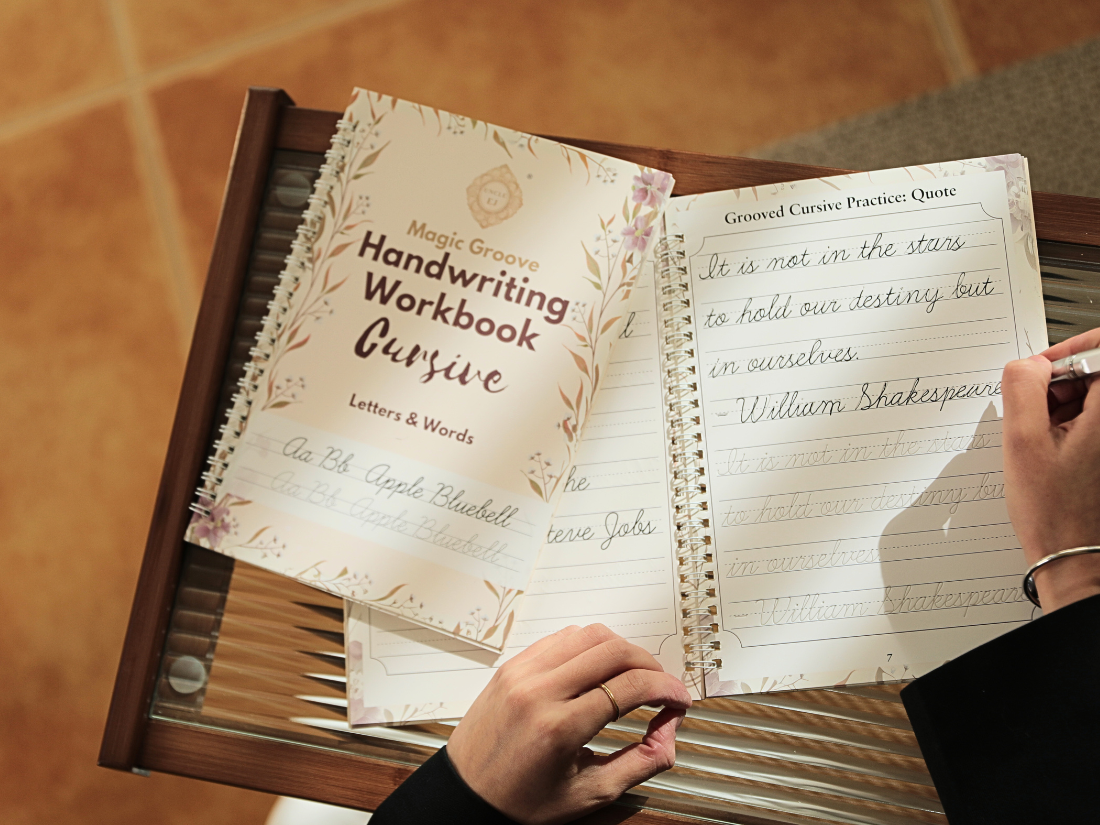 Magic Groove
Handwriting
Workbook
Cursive
Letters & Words
Aa Bb Apple Bluebell
Aa Bb Apple Bluebell
he
teve Jobs
Grooved Cursive Practice: Quote
It is not in the stars
to hold our destiny but
in ourselves.
- William Shakespeare
It is not in the stars
to hold our destiny bu
in ourselves.
- William Shakespeare
7